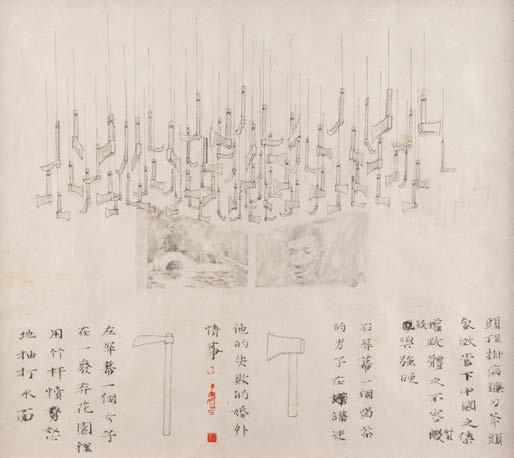 頭頂掛滿鐮刀斧頭
象徵當下中國之集
權政體之不容
與強硬
右屏幕一個喝茶
的男子在講述
他的失敗的婚外
情事
左屏幕一個女子
在一發弃花園裡
用竹杆憤怒
地抽打水面